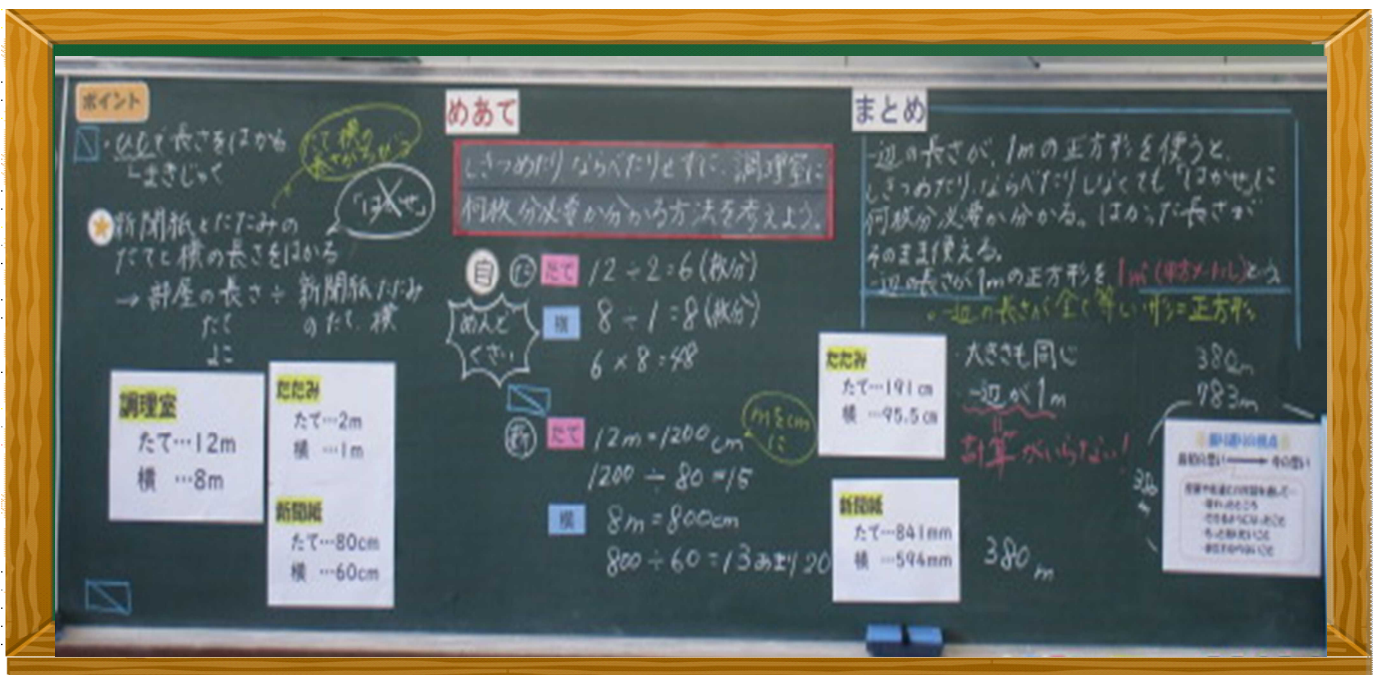 ポイント
・ひもで長さをはかる
まきじゃく
たて横の
長さがちがう
「はかせ」
新聞紙とたたみの
たてと横の長さをはかる
→ 部屋の長さ ÷ 新聞紙たたみ
たて
よこ
のたて、横
調理室
たて…12m
横 …8m
たたみ
たて…2m
横 …1m
新聞紙
たて…80cm
横 …60cm
めあて
しきつめたりならべたりせずに、調理室に
何枚分必要か分かる方法を考えよう。
自
た
たて
12÷2=6(枚分)
横
8÷1=8(枚分)
6×8=48
めんど
くさい
新
たて
12m=1200cm
mをcm
に
1200÷80=15
横
8m=800cm
800÷60=13あまり20
まとめ
一辺の長さが、1mの正方形を使うと、
しきつめたり、ならべたりしなくても「はかせ」に
何枚分必要か分かる。はかった長さが
そのまま使える。
一辺の長さが1mの正方形を1m²(平方メートル)という
・一辺の長さが全て等しい形=正方形
たたみ
たて…191cm
横 …95.5cm
・大きさも同じ
一辺が1m
計算がいらない!
新聞紙
たて…841mm
横 …594mm
380m
783m
380m